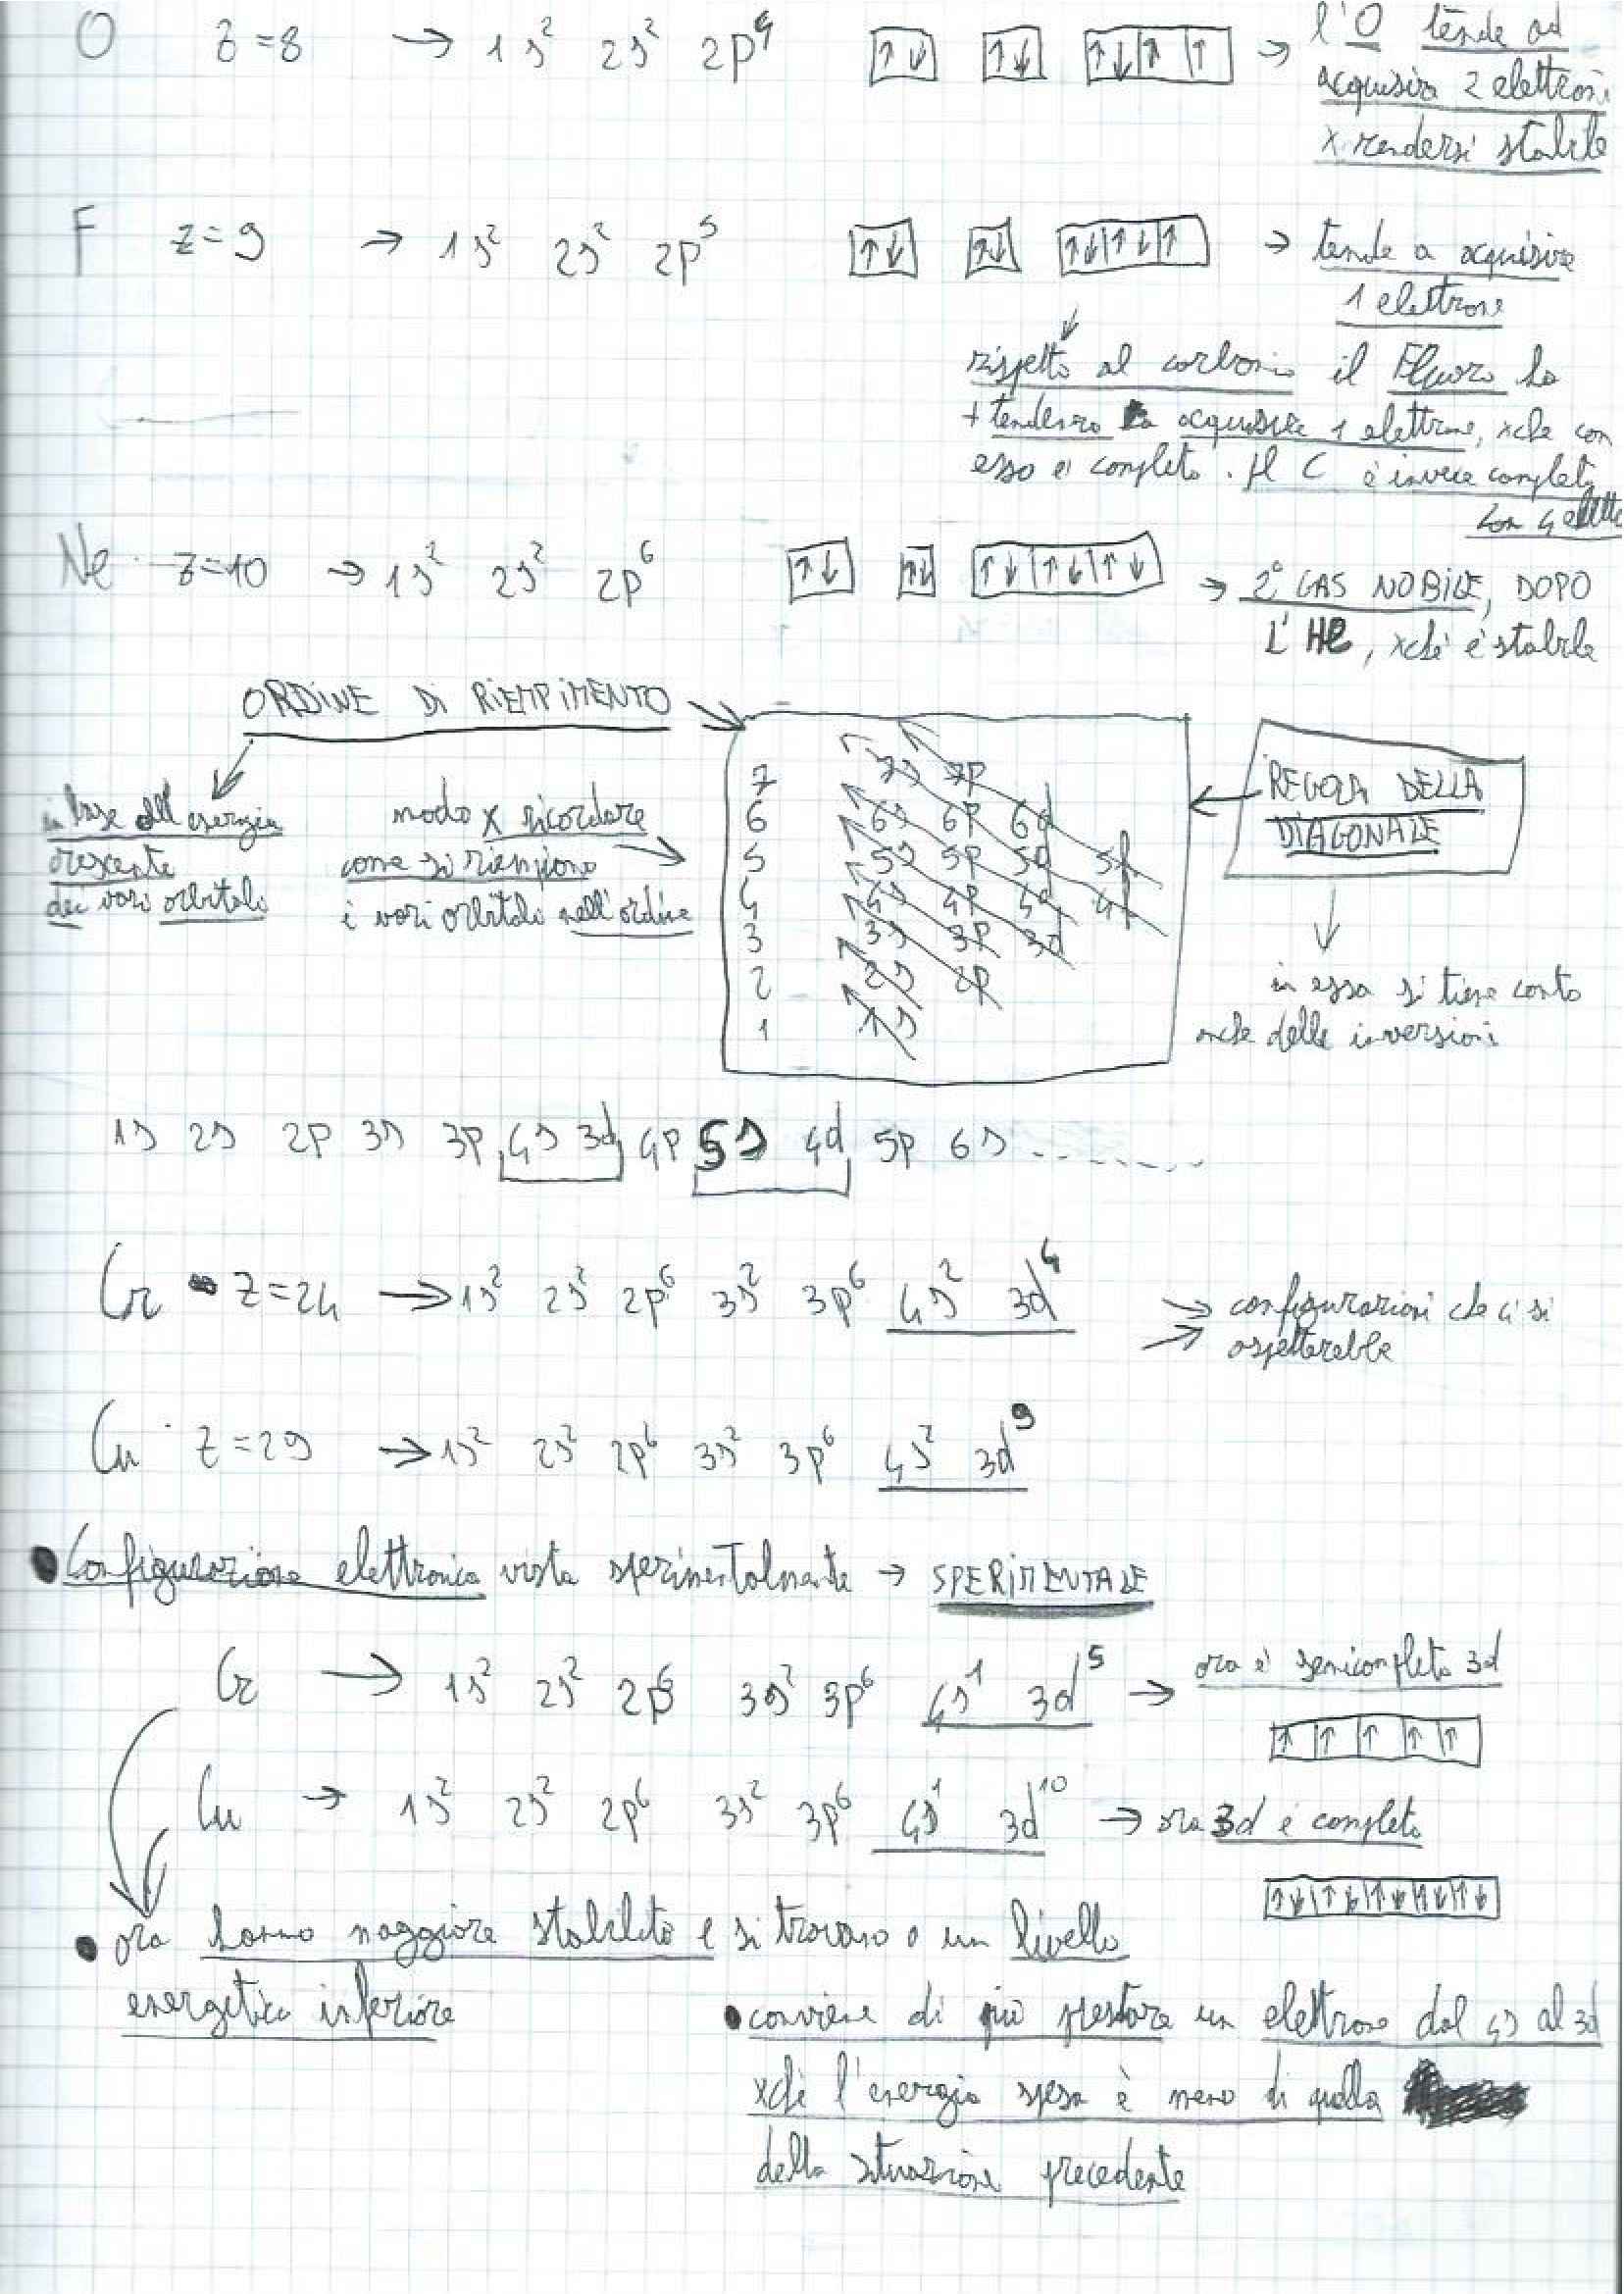 O Z=8 → 1s² 2s² 2p⁴ ↑↓ ↑↓ ↑↓ ↑ ↑ → l'O tende ad
acquisire 2 elettroni
x rendersi stabile
F Z=9 → 1s² 2s² 2p⁵ ↑↓ ↑↓ ↑↓ ↑↓ ↑ → tende a acquisire
1 elettrone
rispetto al carbonio il Fluoro ha
+ tendenza a acquisire 1 elettrone, xche con
esso è completo. Il C è invece completo
con 4 elett
Ne Z=10 → 1s² 2s² 2p⁶ ↑↓ ↑↓ ↑↓ ↑↓ ↑↓ → 2° GAS NOBILE, DOPO
L'He, xchè è stabile
ORDINE DI RIEMPIMENTO
in base all'energia
crescente
dei vari orbitali
modo x ricordare
come si riempiono
i vari orbitali nell'ordine
7 7s 7p
6 6s 6p 6d
5 5s 5p 5d 5f
4 4s 4p 4d 4f
3 3s 3p 3d
2 2s 2p
1 1s
REGOLA DELLA
DIAGONALE
in essa si tiene conto
anche delle inversioni
1s 2s 2p 3s 3p 4s 3d 4p 5s 4d 5p 6s .......
Cr Z=24 → 1s² 2s² 2p⁶ 3s² 3p⁶ 4s² 3d⁴
→ configurazioni che ci si
→ aspetterebbe
Cu Z=29 → 1s² 2s² 2p⁶ 3s² 3p⁶ 4s² 3d⁹
• Configurazione elettronica vista sperimentalmente → SPERIMENTALE
Cr → 1s² 2s² 2p⁶ 3s² 3p⁶ 4s¹ 3d⁵ → ora è semicompleto 3d
↑ ↑ ↑ ↑ ↑
Cu → 1s² 2s² 2p⁶ 3s² 3p⁶ 4s¹ 3d¹⁰ → ora 3d è completo
↑↓ ↑↓ ↑↓ ↑↓ ↑↓
• ora hanno maggiore stabilità e si trovano a un livello
energetico inferiore
• conviene di più prestare un elettrone dal 4s al 3d
xchè l'energia spesa è meno di quella
della situazione precedente